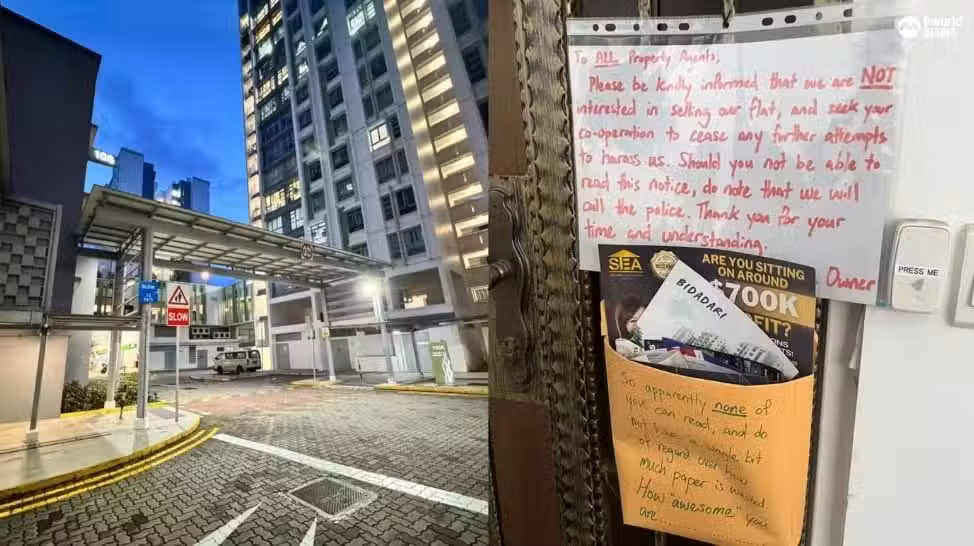 SLOW
SLOW
To ALL Property Agents,
Please be kindly informed that we are NOT
interested in selling our flat, and seek your
co-operation to cease any further attempts
to harass us. Should you not be able to
read this notice, do note that we will
call the police. Thank you for your
time and understanding.
Owner
PRESS ME
SEA
ARE YOU SITTING
ON AROUND
$700K
FIT?
BIDADARI
So apparently none of
you can read, and do
not have a single bit
of regard over how
much paper is wasted.
How "awesome" you
are